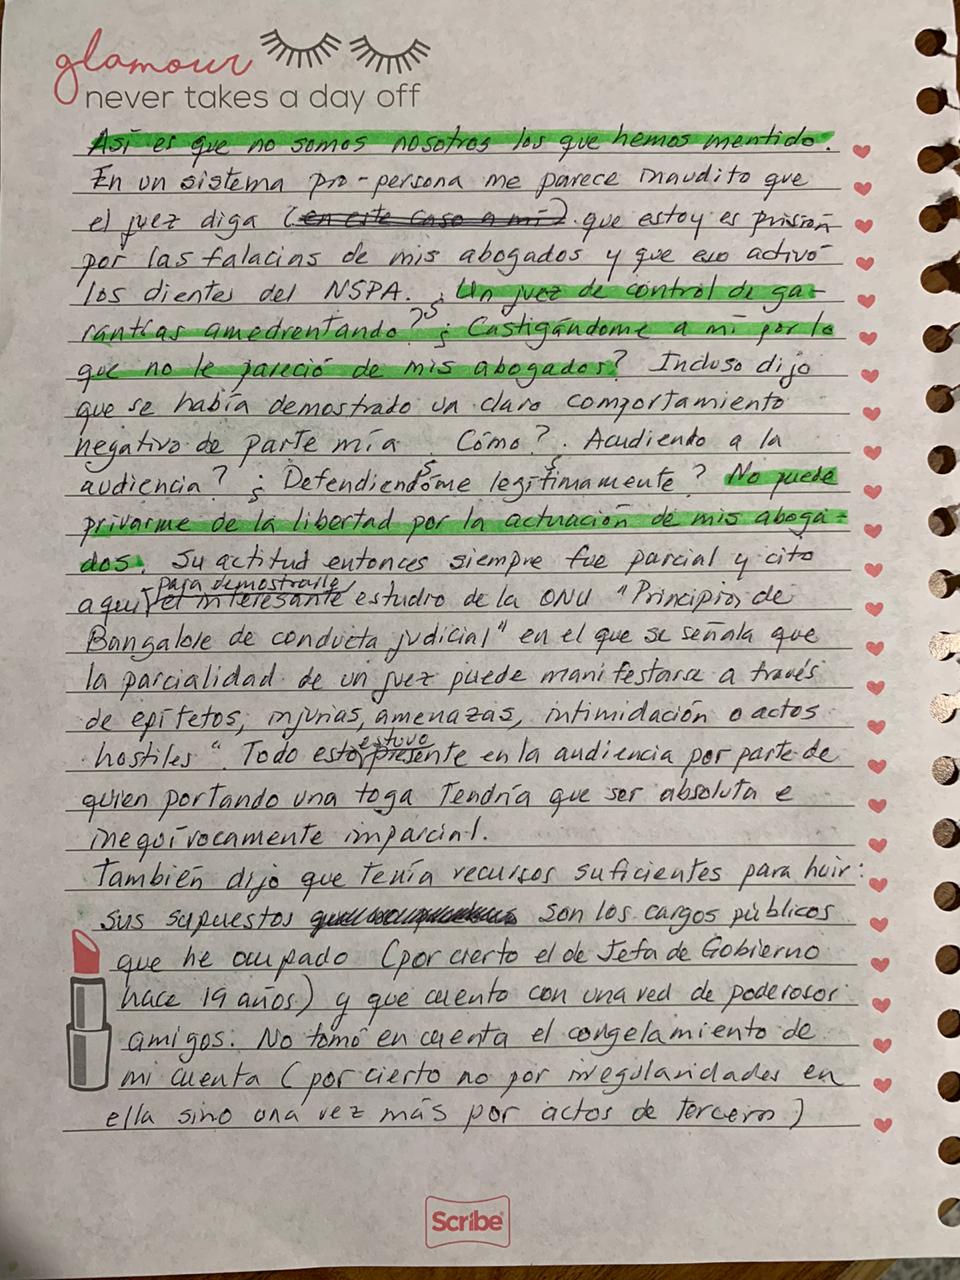 glamour
never takes a day off
Así es que no somos nosotros los que hemos mentido.
En un sistema pro-persona me parece inaudito que
el juez diga (en este caso a mí) que estoy es prisión
por las falacias de mis abogados y que eso activó
los dientes del NSPA. ¿Un juez de control de ga-
rantías amedrentando? ¿Castigándome a mí por lo
que no le pareció de mis abogados? Incluso dijo
que se había demostrado un claro comportamiento
negativo de parte mía. Cómo?. Acudiendo a la
audiencia? ¿Defendiendóme legítimamente? No puede
privarme de la libertad por la actuación de mis aboga-
dos. Su actitud entonces siempre fue parcial y cito
para demostrarlo
aquí el interesante estudio de la ONU "Principios de
Bangalore de conducta judicial" en el que se señala que
la parcialidad de un juez puede manifestarse a través
de epítetos, injurias, amenazas, intimidación o actos
estuvo
hostiles". Todo esto presente en la audiencia por parte de
quien portando una toga tendría que ser absoluta e
inequívocamente imparcial.
También dijo que tenía recursos suficientes para huir:
sus supuestos son los cargos públicos
que he ocupado (por cierto el de Jefa de Gobierno
hace 19 años) y que cuento con una red de poderosos
amigos. No tomó en cuenta el congelamiento de
mi cuenta (por cierto no por irregularidades en
ella sino una vez más por actos de terceros)
Scribe